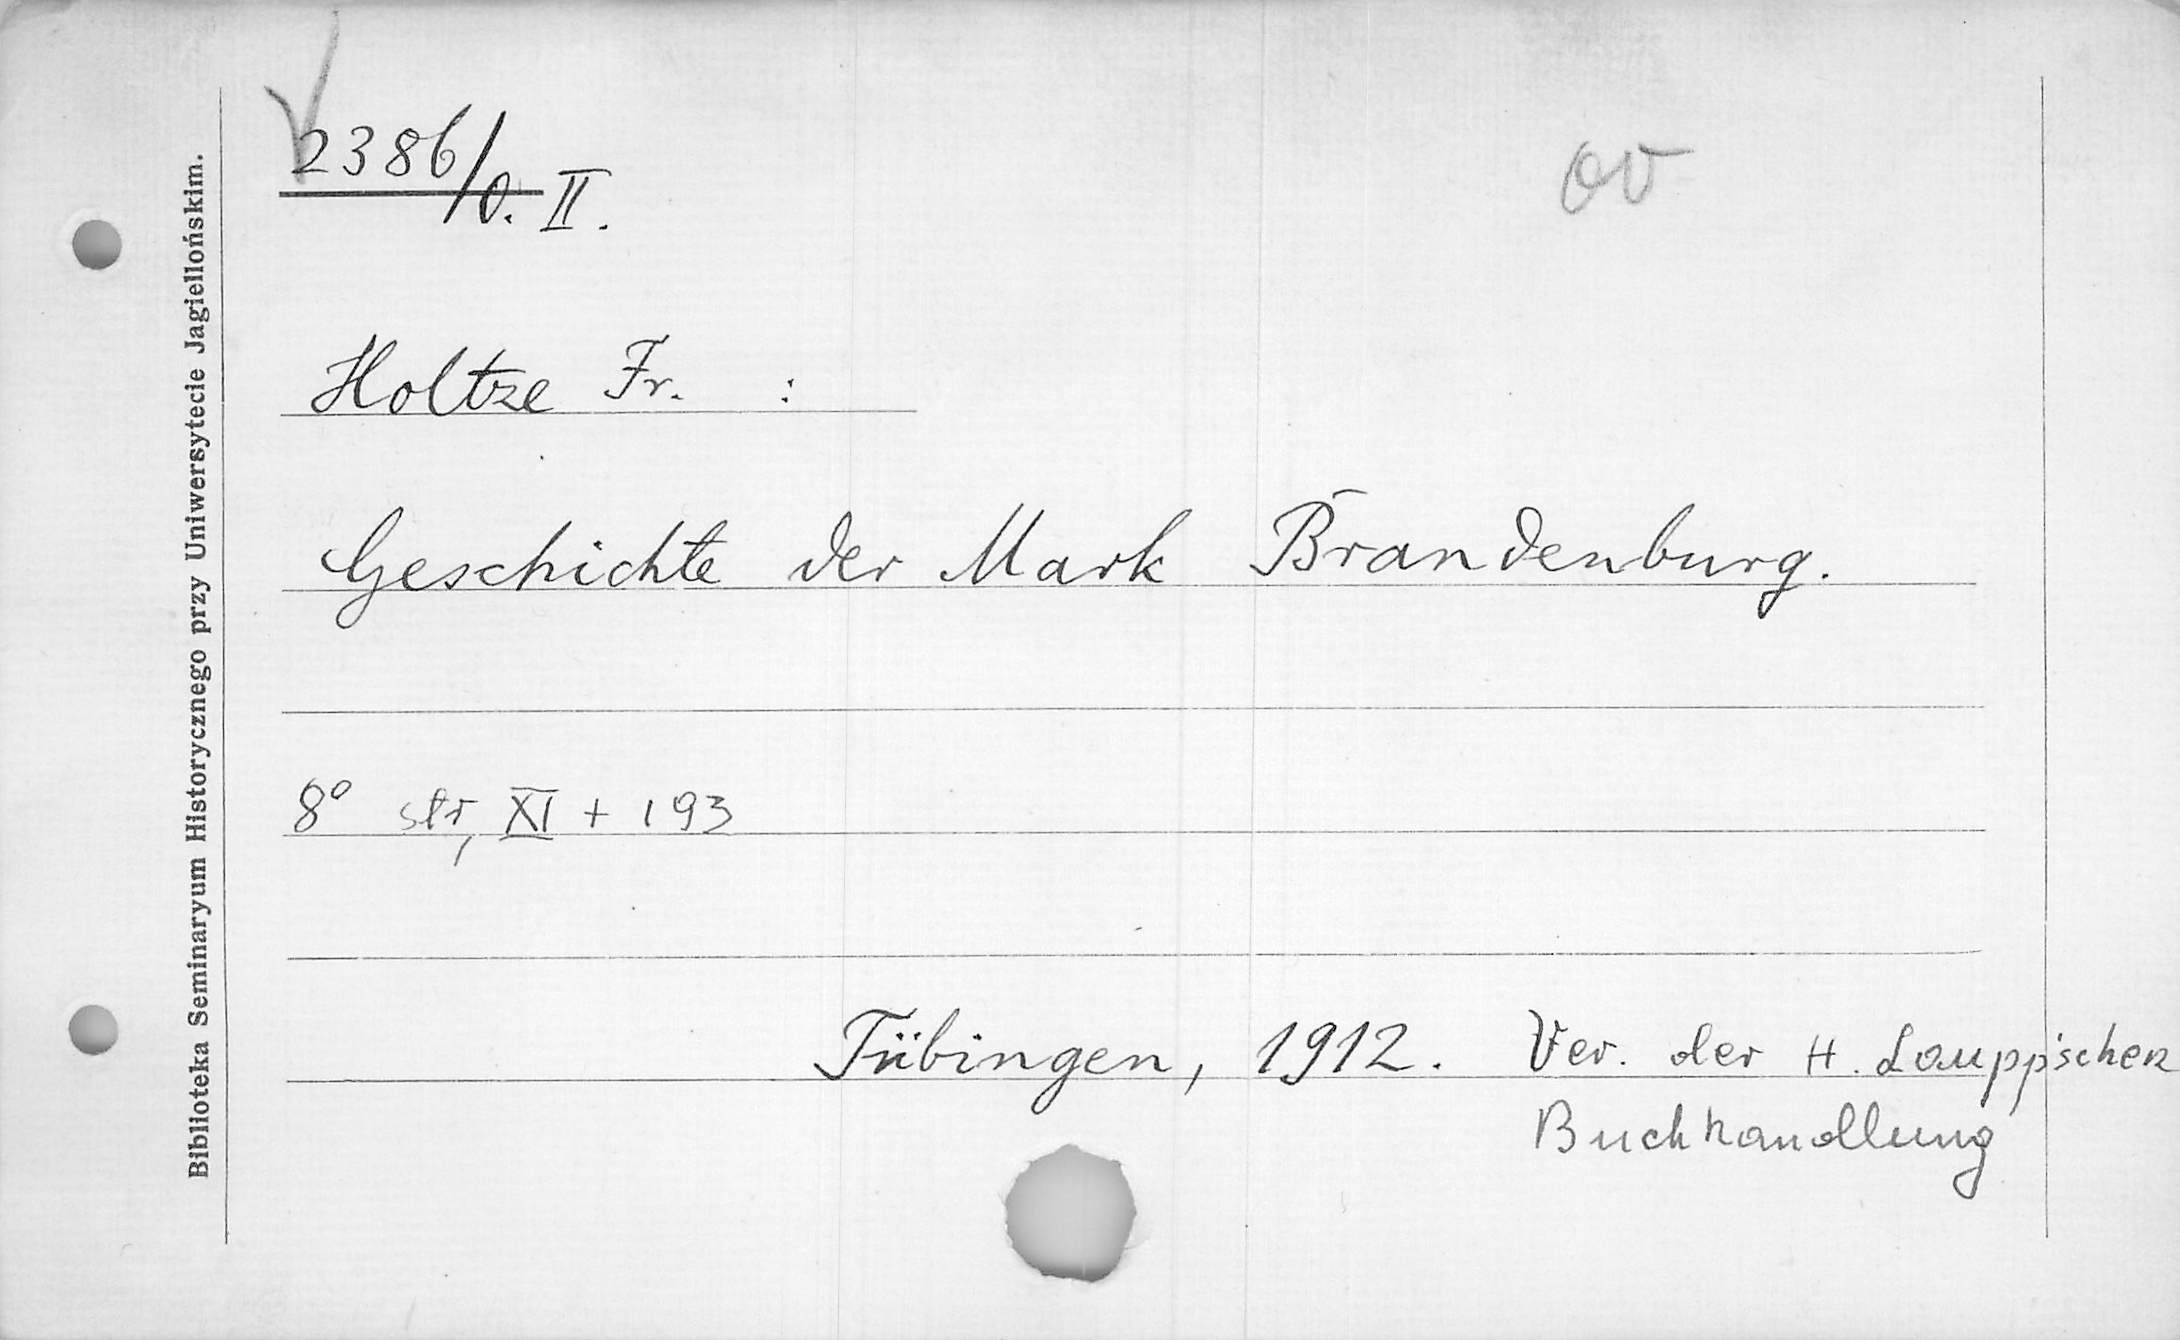 2386/0. II.
ov
Holtze Fr. :
Geschichte der Mark Brandenburg.
8° str, XI + 193
Tübingen, 1912. Ver. der H. Laupp'schen
Buchhandlung
Biblioteka Seminaryum Historycznego przy Uniwersytecie Jagiellońskim.